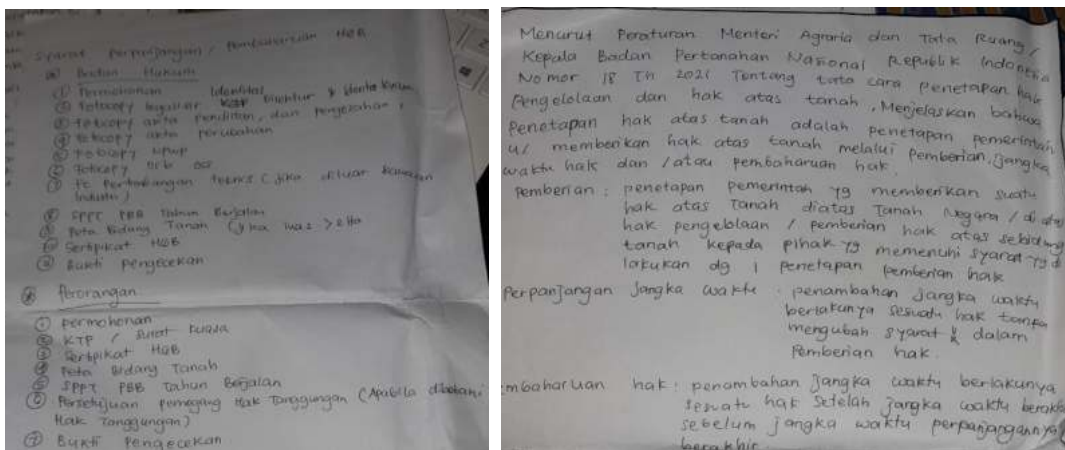 Syarat Perpanjangan / Pembaharuan HGB
Badan Hukum
① Permohonan
② Fotocopy legalisir Identitas Direktur &
③ Fotocopy akta Pendirian, dan pengesahan,
④ Fotocopy akta perubahan
⑤ Fotocopy NPWP
⑥ Fotocopy NIB OSS
⑦ Fc Pertimbangan teknis (jika diluar kawasan
Industri)
⑧ SPPT PBB Tahun Berjalan
⑨ Peta Bidang Tanah (jika luas > 2 Ha
⑩ Sertipikat HGB
⑪ Bukti Pengecekan
Perorangan
① Permohonan
② KTP / Surat Kuasa
③ Sertpikat HGB
④ Peta Bidang Tanah
⑤ SPPT PBB Tahun Berjalan
⑥ Persetujuan Pemegang Hak Tanggungan (Apabila dibebani
Hak Tanggungan)
⑦ Bukti Pengecekan
Menurut Peraturan Menteri Agraria dan Tata Ruang /
Kepala Badan Pertanahan Nasional Republik Indonesia
Nomor 18 Th 2021 Tentang tata cara penetapan hak
Pengelolaan dan hak atas tanah, Menjelaskan bahwa
Penetapan hak atas tanah adalah penetapan pemerintah
u/ memberikan hak atas tanah melalui Pemberian, Jangka
waktu hak dan / atau pembaharuan hak.
Pemberian : penetapan pemerintah yg memberikan suatu
hak atas Tanah diatas Tanah Negara / di atas
hak pengelolaan / pemberian hak atas sebidang
tanah kepada pihak yg memenuhi syarat yg di
lakukan dg 1 penetapan pemberian hak
Perpanjangan Jangka waktu : penambahan jangka waktu
berlakunya sesuatu hak tanpa
mengubah syarat & dalam
Pemberian hak.
mbaharuan hak : penambahan jangka waktu berlakunya
sesuatu hak setelah jangka waktu berakh
sebelum jangka waktu perpanjangannya
berakhir